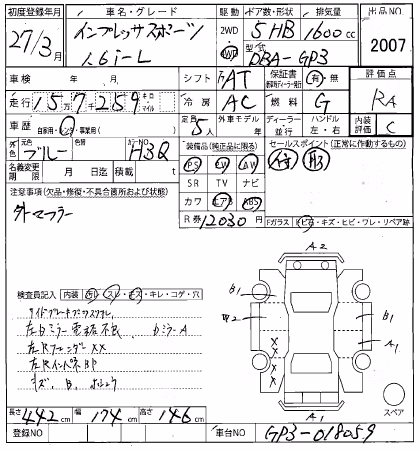 初度登録年月 車名・グレード 駆動 ドア数・形状 排気量 出品NO
27/3月 インプレッサスポーツ 1.6i-L 2WD 4WD 5HB 1600cc 2007
型式 DBA-GP3
車検 年 月 シフト FAT 保証書 有・無 評価点
走行 157千259 キロ マイル 冷房 AC 燃料 G RA
車歴 自家用・レンタ・事業用( ) 定員 5人 外車モデル 年 ディーラー 並行 ハンドル 左・右 内装評価 C
外色 元色 ブルー カラーNO H3Q 装備品(純正品に限る) セールスポイント(正常に作動するもの)
名義変更期限 月 日迄 積載 t PS PW AW
SR TV ナビ
注意事項(欠品・修復・不具合箇所および状態) カワ エアB ABS
外マフラー R券 12030円 Fガラス トビ石・キズ・ヒビ・ワレ・リペア跡
A2
検査員記入 内装 スレ・キレ・コゲ・穴
B1
左ドミラー電格不良 ドミラーA
B1
左RフェンダーXX
A1
左RインパネBP
XX
キズ、B、
A1
スペア
長さ 442cm 幅 174cm 高さ 146cm
登録NO 車台NO GP3-018059